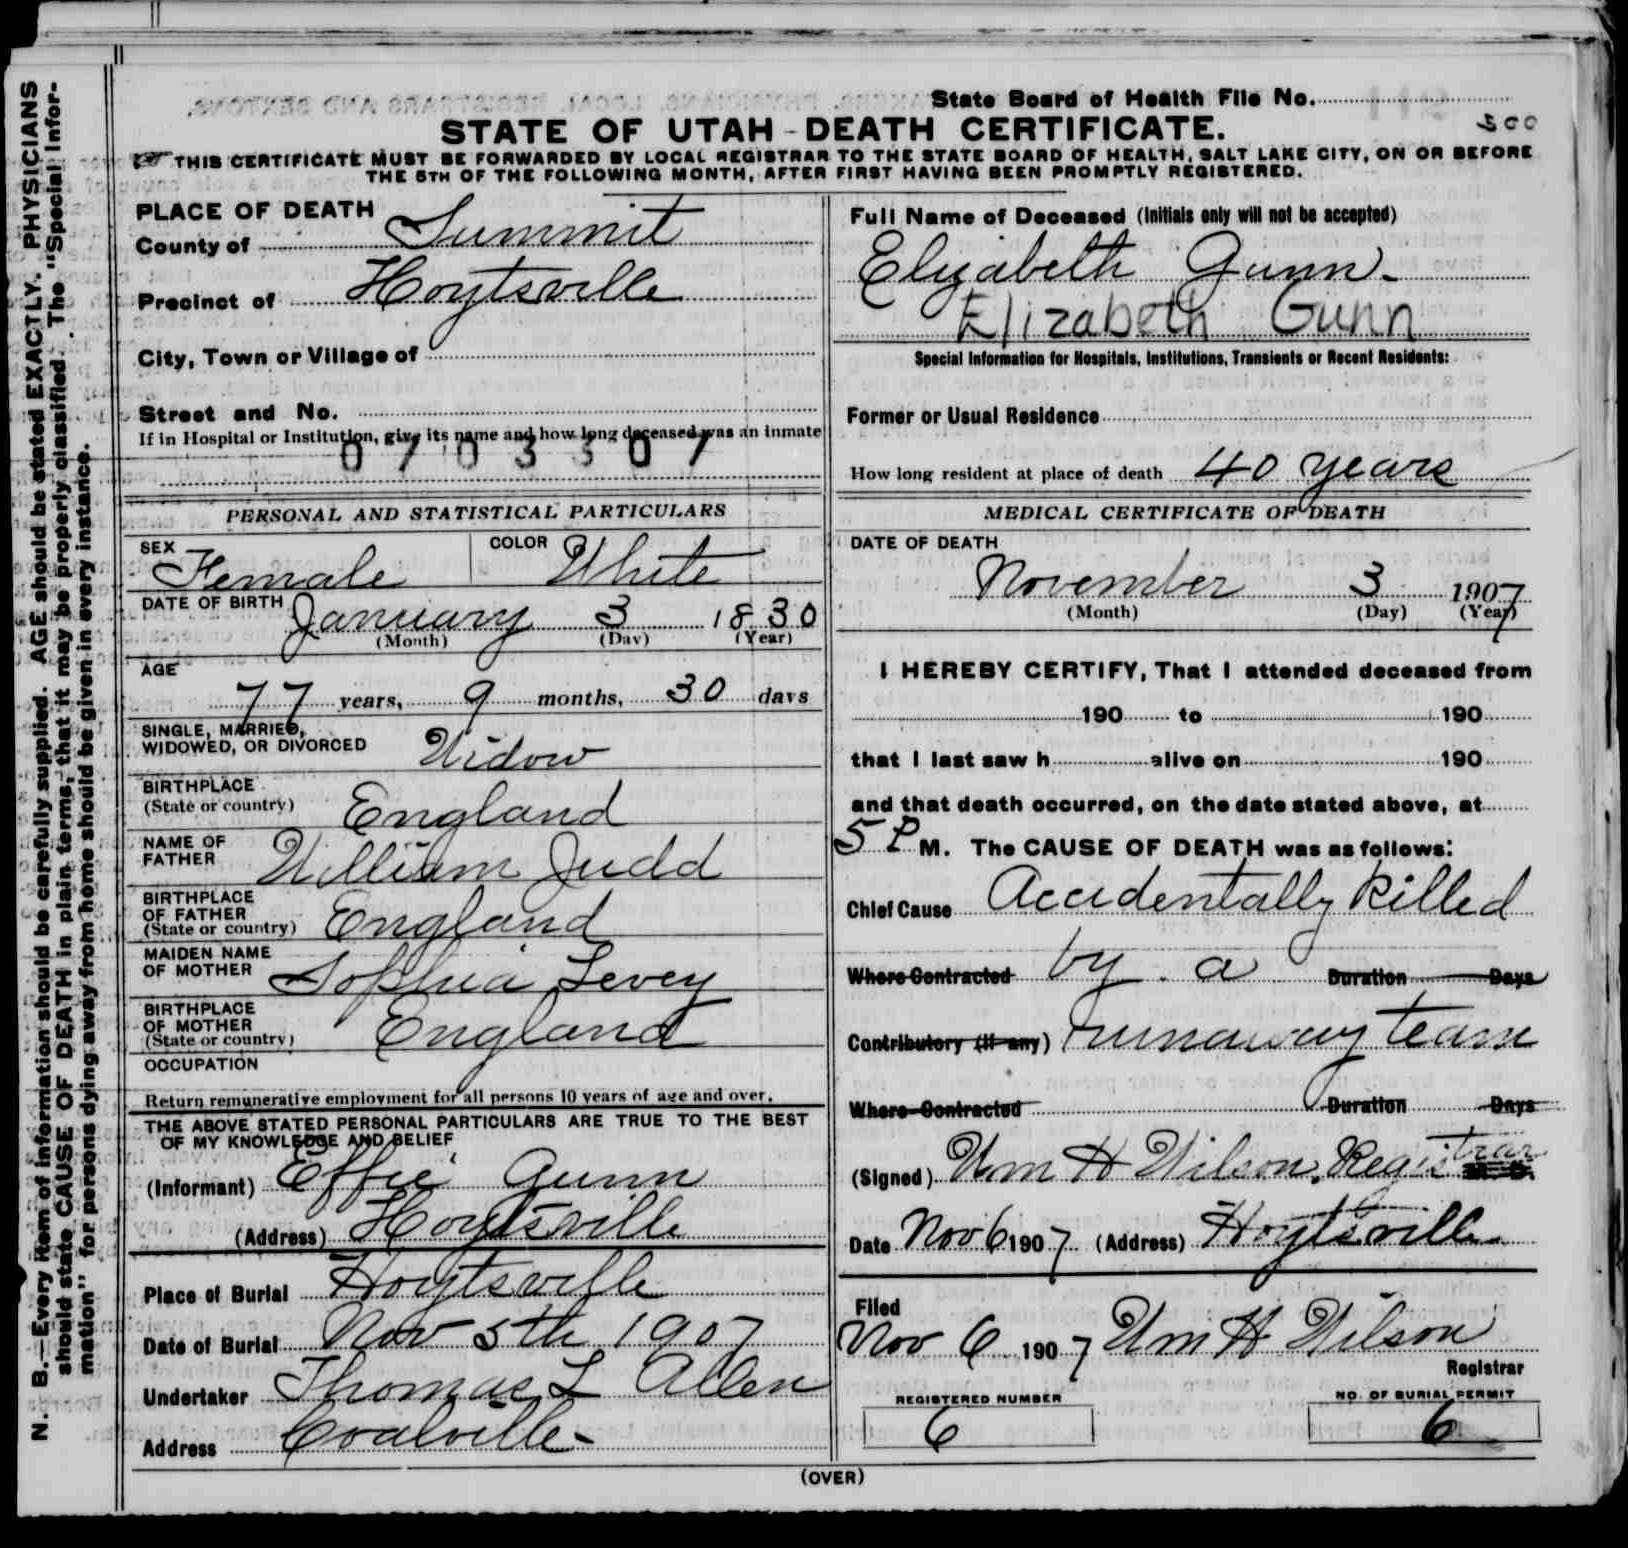 N. B.—Every item of information should be carefully supplied. AGE should be stated EXACTLY. PHYSICIANS
should state CAUSE OF DEATH in plain terms, that it may be properly classified. The "Special Infor-
mation" for persons dying away from home should be given in every instance.
State Board of Health File No.
500
STATE OF UTAH - DEATH CERTIFICATE.
THIS CERTIFICATE MUST BE FORWARDED BY LOCAL REGISTRAR TO THE STATE BOARD OF HEALTH, SALT LAKE CITY, ON OR BEFORE
THE 5TH OF THE FOLLOWING MONTH, AFTER FIRST HAVING BEEN PROMPTLY REGISTERED.
PLACE OF DEATH
County of Summit
Precinct of Hoytsville
City, Town or Village of
Street and No.
If in Hospital or Institution, give its name and how long deceased was an inmate
0703307
PERSONAL AND STATISTICAL PARTICULARS
SEX Female COLOR White
DATE OF BIRTH January 3 1830
(Month) (Day) (Year)
AGE
77 years, 9 months, 30 days
SINGLE, MARRIED,
WIDOWED, OR DIVORCED Widow
BIRTHPLACE
(State or country) England
NAME OF
FATHER William Judd
BIRTHPLACE
OF FATHER
(State or country) England
MAIDEN NAME
OF MOTHER Sophia Levey
BIRTHPLACE
OF MOTHER
(State or country) England
OCCUPATION
Return remunerative employment for all persons 10 years of age and over.
THE ABOVE STATED PERSONAL PARTICULARS ARE TRUE TO THE BEST
OF MY KNOWLEDGE AND BELIEF
(Informant) Effie Gunn
(Address) Hoytsville
Place of Burial Hoytsville
Date of Burial Nov 5th 1907
Undertaker Thomas L Allen
Address Coalville
Full Name of Deceased (Initials only will not be accepted)
Elizabeth Gunn
Elizabeth Gunn
Special Information for Hospitals, Institutions, Transients or Recent Residents:
Former or Usual Residence
How long resident at place of death 40 years
MEDICAL CERTIFICATE OF DEATH
DATE OF DEATH
November 3 1907
(Month) (Day) (Year)
I HEREBY CERTIFY, That I attended deceased from
190 to 190
that I last saw h alive on 190
and that death occurred, on the date stated above, at
5 P M. The CAUSE OF DEATH was as follows:
Chief Cause Accidentally killed
Where Contracted by a Duration Days
Contributory (if any) runaway team
Where Contracted Duration Days
(Signed) Wm H Wilson, Registrar
Date Nov 6 1907 (Address) Hoytsville
Filed
Nov 6 1907 Wm H Wilson
Registrar
REGISTERED NUMBER NO. OF BURIAL PERMIT
6 6
(OVER)